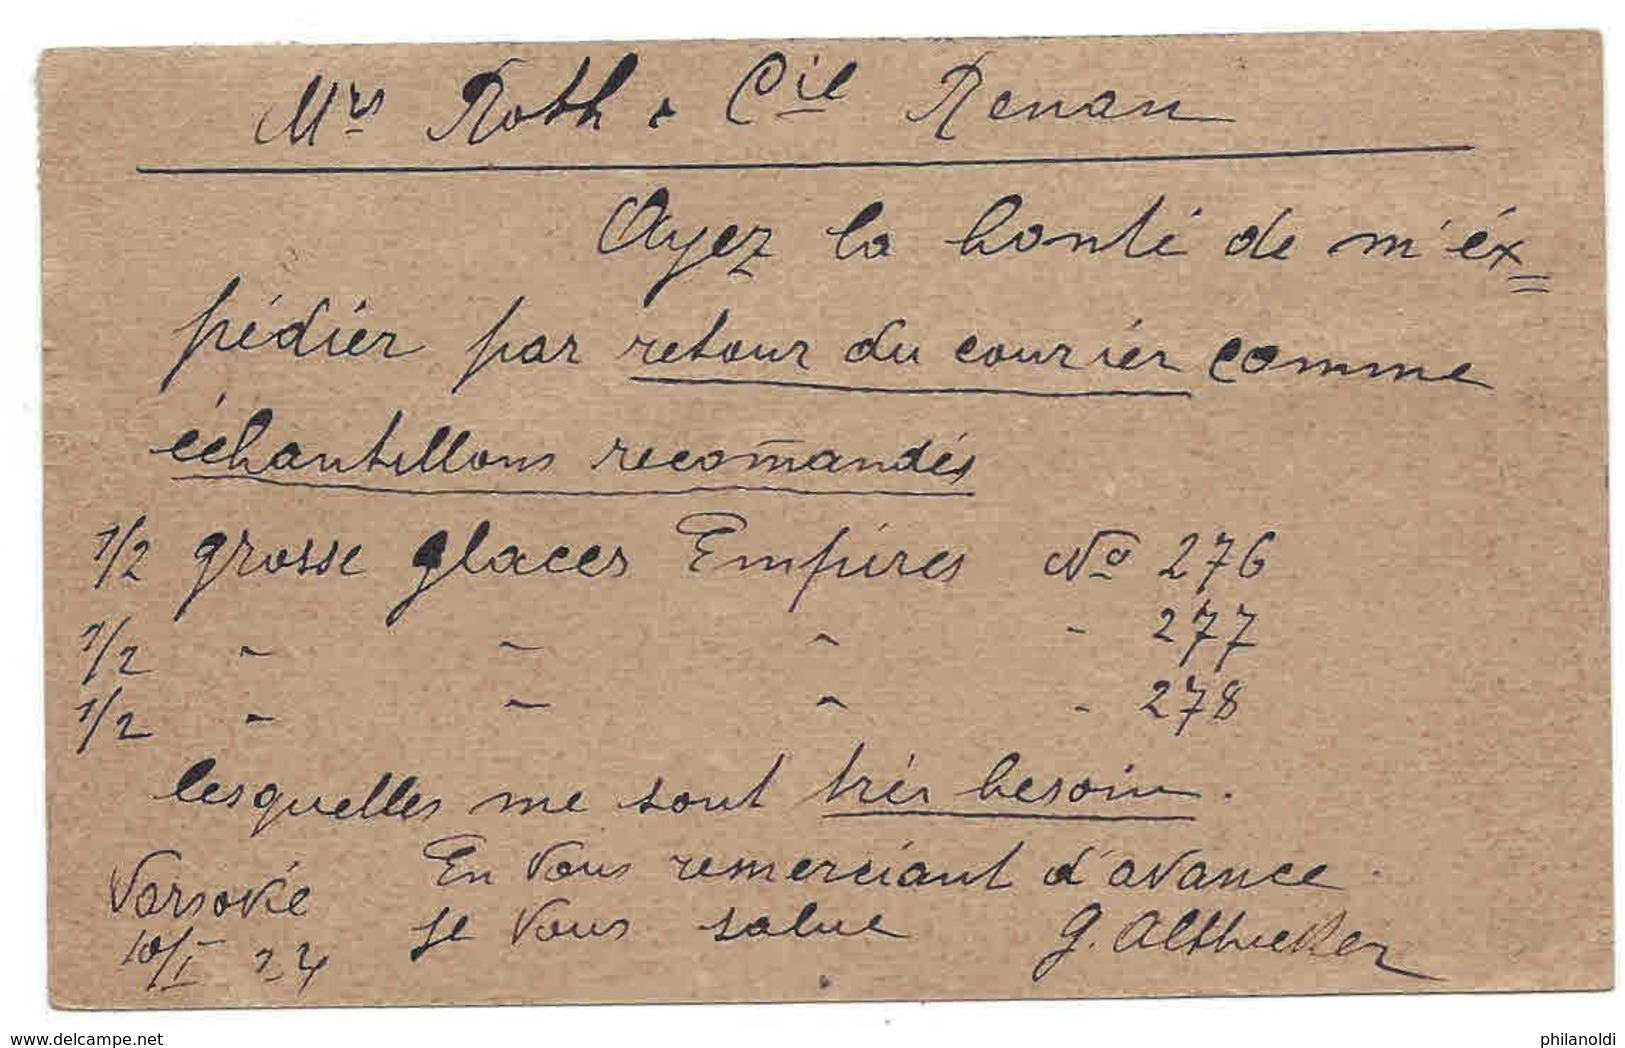 Mrs Roth & Cie Renan
Ayez la bonté de m'éx=
pédier par retour du courier comme
échantillons recom̄andés
1/2 grosse glaces Empires No 276
1/2 " " " " 277
1/2 " " " " 278
lesquelles me sont très besoin.
En vous remerciant d'avance
Varsovie
je vous salue
10/I 24
G.
www.delcampe.net
philanoldi